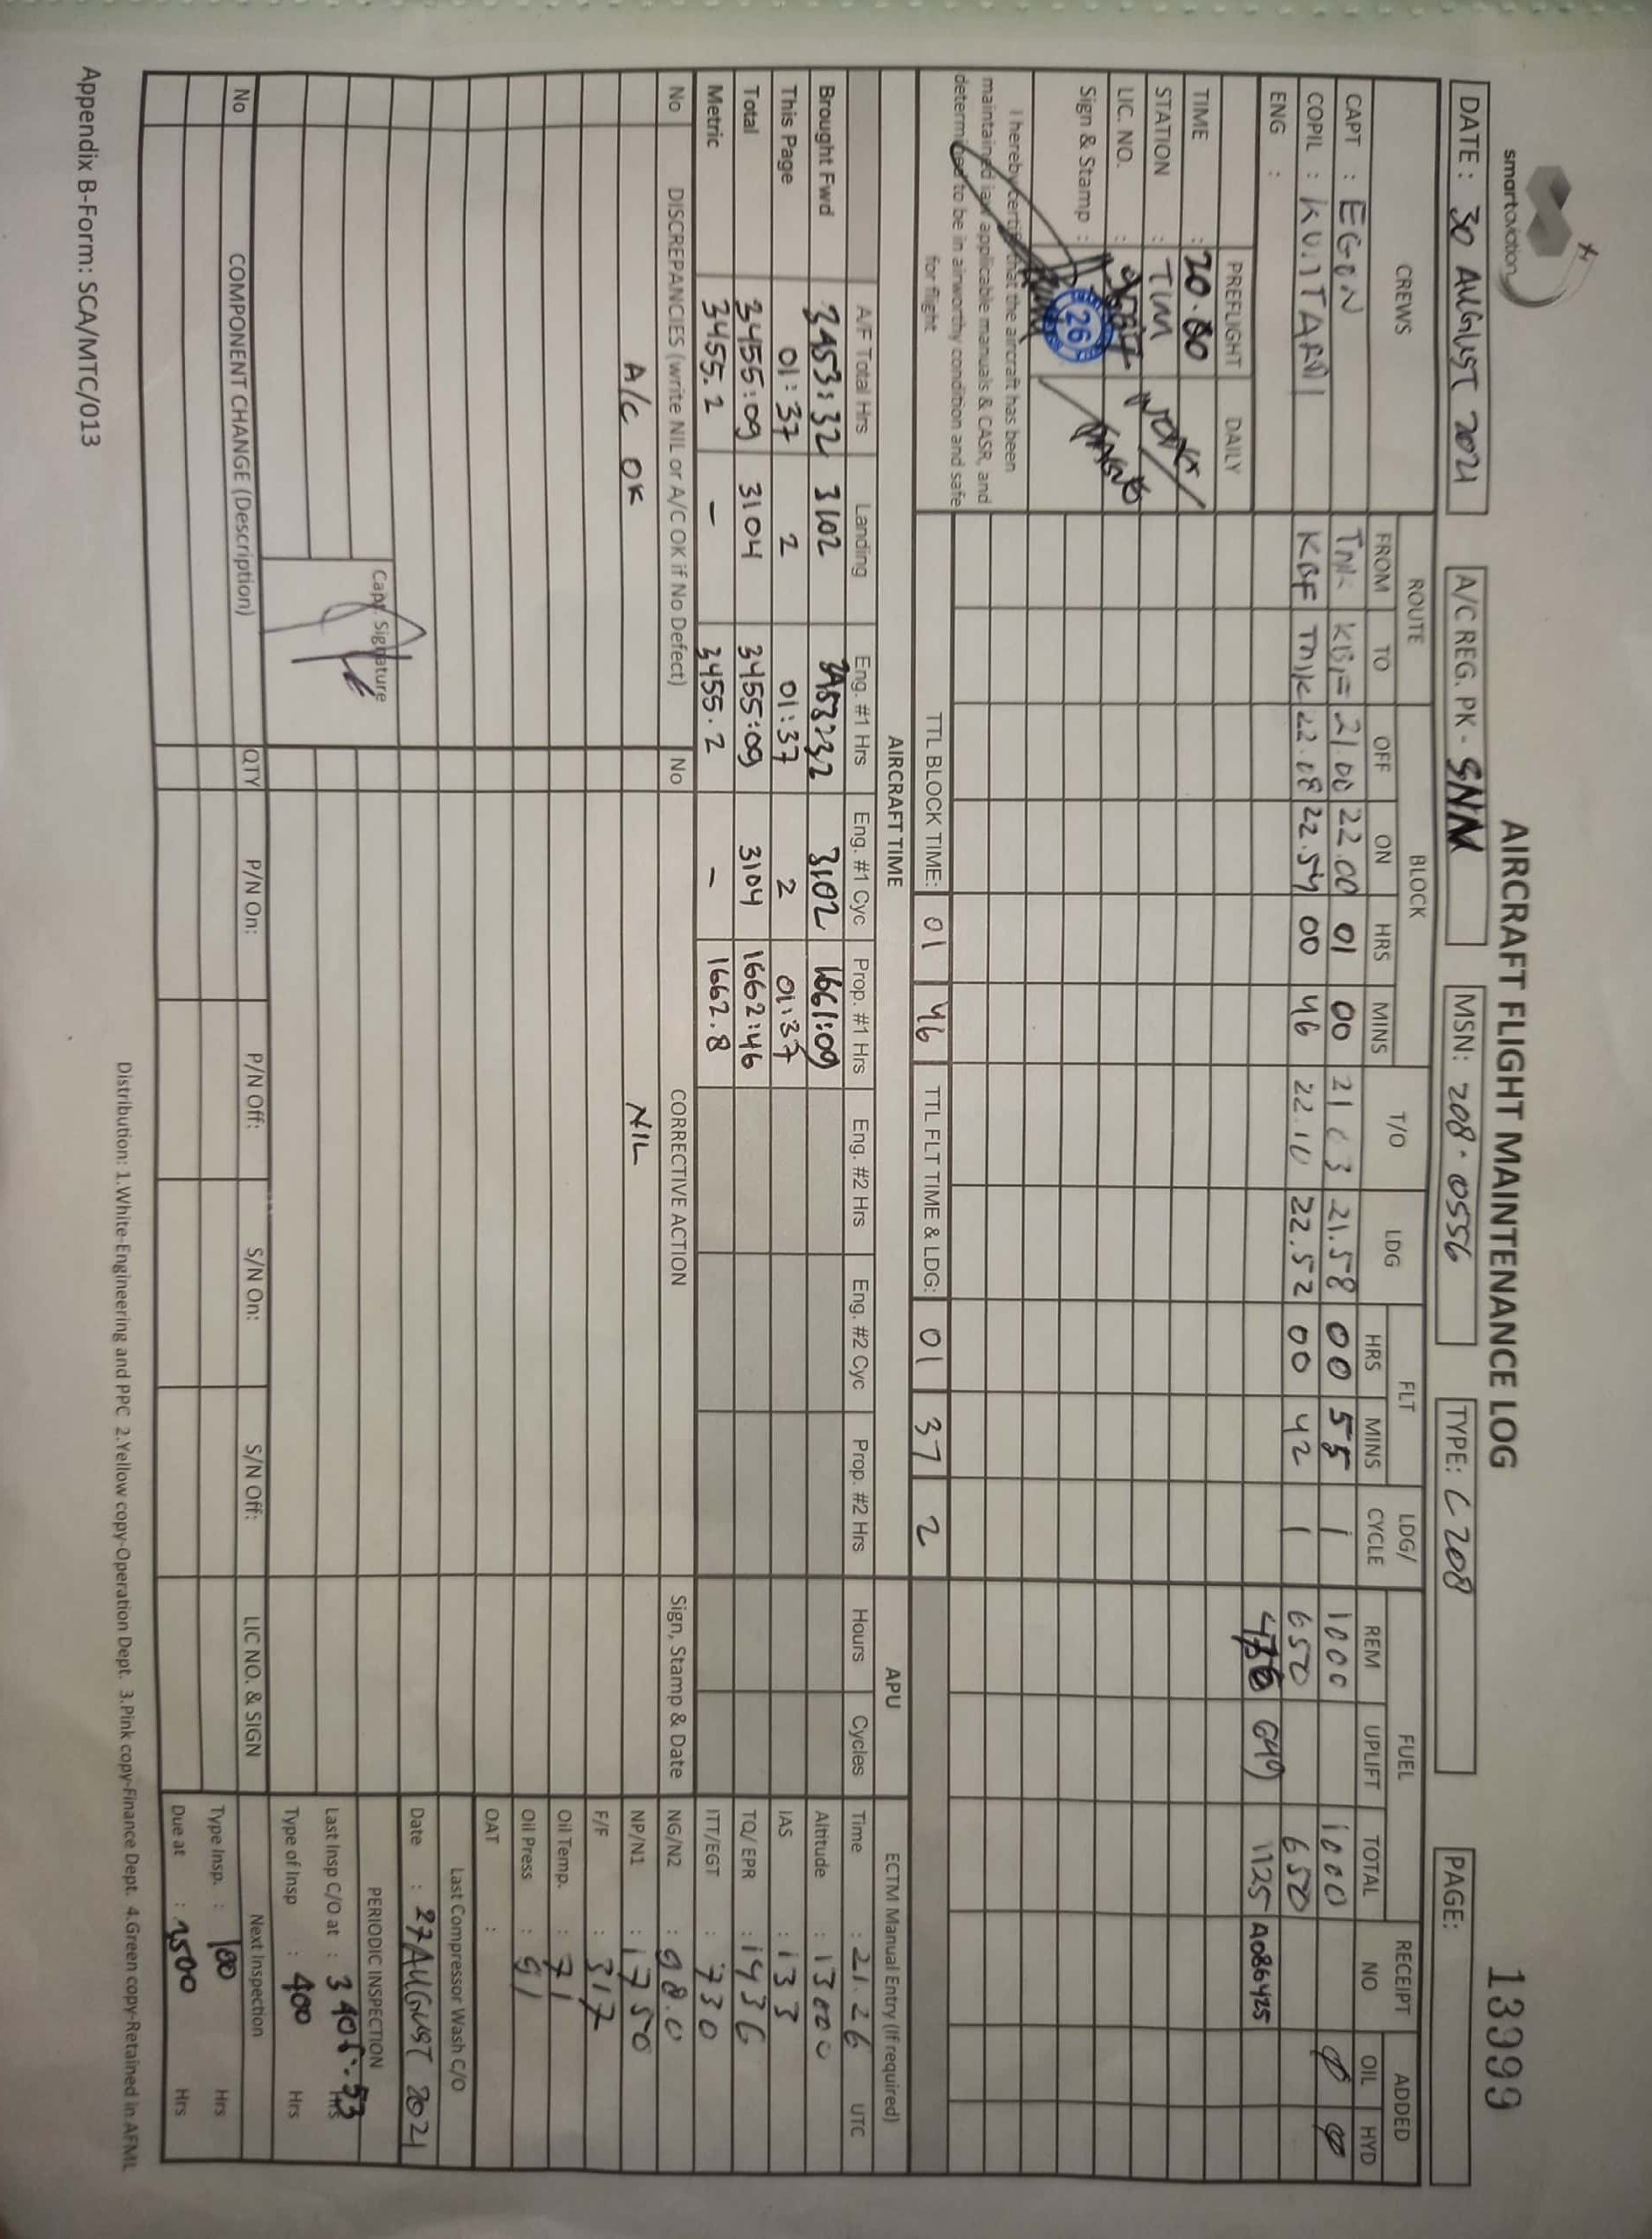 smartaviation
AIRCRAFT FLIGHT MAINTENANCE LOG
13999
DATE : 30 AUGUST 2021
A/C REG. PK - SNM
MSN: 208-0556
TYPE: C 208
PAGE:
CREWS ROUTE BLOCK T/O LDG FLT LDG/ CYCLE FUEL RECEIPT NO ADDED
FROM TO OFF ON HRS MINS HRS MINS REM UPLIFT TOTAL OIL HYD
CAPT : EGON TMK KBF 21.00 22.00 01 00 21 03 21.58 00 55 1 1000 1000 Ø Ø
COPIL : KUNTARDI KBF TMK 22.08 22.54 00 46 22.10 22.52 00 42 1 650 650
ENG : 649 1125 A086425
PREFLIGHT DAILY
TIME : 20.00
STATION : TIM
LIC. NO. :
Sign & Stamp : 26
I hereby certify that the aircraft has been
maintained iaw applicable manuals & CASR, and
determined to be in airworthy condition and safe
for flight
TTL BLOCK TIME: 01 46 TTL FLT TIME & LDG: 01 37 2
AIRCRAFT TIME APU
A/F Total Hrs Landing Eng. #1 Hrs Eng. #1 Cyc Prop. #1 Hrs Eng. #2 Hrs Eng. #2 Cyc Prop. #2 Hrs Hours Cycles
Brought Fwd 3453:32 3102 3453:32 3102 1661:09
This Page 01:37 2 01:37 2 01:37
Total 3455:09 3104 3455:09 3104 1662:46
Metric 3455.2 - 3455.2 - 1662.8
No DISCREPANCIES (write NIL or A/C OK if No Defect) No CORRECTIVE ACTION Sign, Stamp & Date
A/C OK NIL
Capt. Signature
No COMPONENT CHANGE (Description) QTY P/N On: P/N Off: S/N On: S/N Off: LIC NO. & SIGN
ECTM Manual Entry (If required)
Time : 21.26 UTC
Altitude : 13000
IAS : 133
TQ/ EPR : 1436
ITT/EGT : 730
NG/N2 : 98.0
NP/N1 : 1750
F/F : 317
Oil Temp. : 71
Oil Press : 91
OAT :
Last Compressor Wash C/O
Date : 27 AUGUST 2021
PERIODIC INSPECTION
Last Insp C/O at : 3405:53 Hrs
Type of Insp : 400 Hrs
Next Inspection
Type Insp. : 100 Hrs
Due at : 3500 Hrs
Distribution: 1.White-Engineering and PPC 2.Yellow copy-Operation Dept. 3.Pink copy-Finance Dept. 4.Green copy-Retained in AFML
Appendix B-Form: SCA/MTC/013